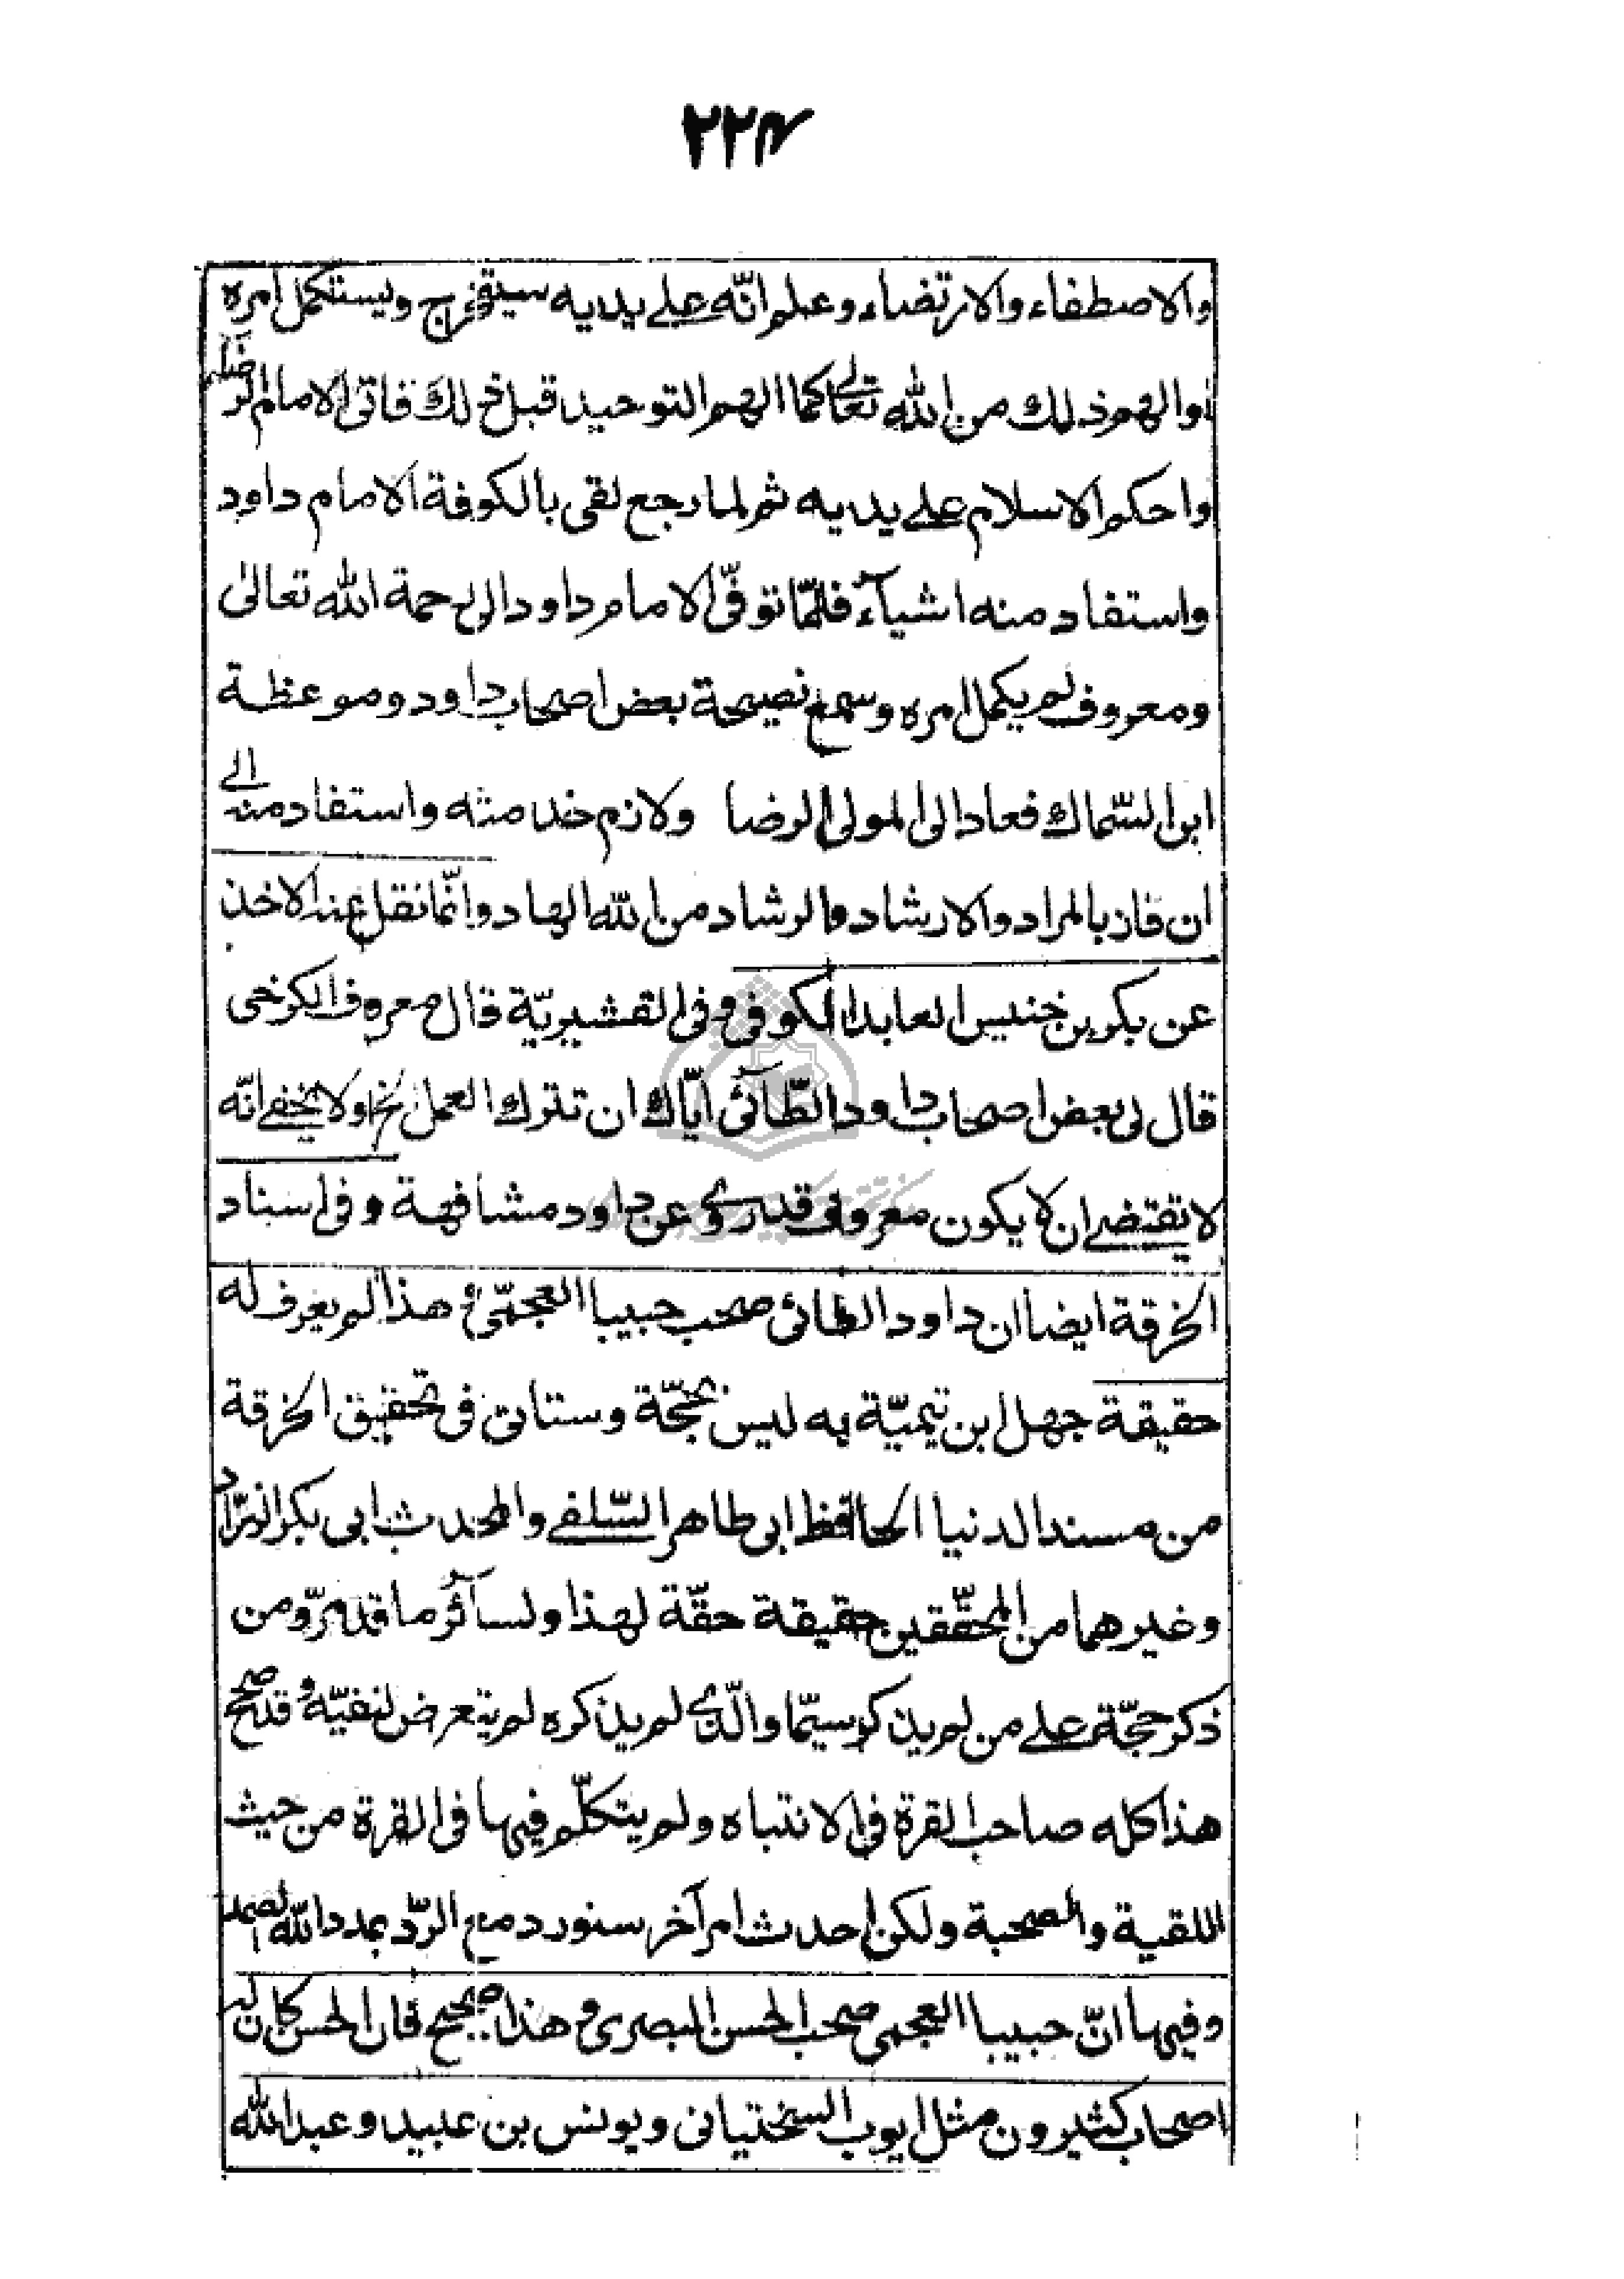 ٢٢٤
والاصطفاء والارتضاء وعلم انّه على يديه سيتخرج ويستكمل امره
اوالهم ذلك من الله تعالى كما الهم التوحيد قبل ذلك فاتى الامام الرضا
واحكم الاسلام على يديه ثم لما رجع لقى بالكوفة الامام داود
واستفاد منه اشيآء فلمّا توفّى الامام داود الى رحمة الله تعالى
ومعروف لم يكمل امره وسمع نصيحة بعض اصحاب داود وموعظة
ابن السّماك فعاد الى المولى الرضا ولازم خدمته واستفاد منه الى
ان فاز بالمراد والارشاد والرشاد من الله الهاد وانّما نقل عنه الاخذ
عن بكر بن خنيس العابد الكوفى وفى القشيريّة قال معروف الكرخى
قال لى بعض اصحاب داود الطّآئى ايّاك ان تترك العمل الخ ولا يخفى انّه
لا يقتضى ان لا يكون معروف قد روى عن داود مشافهة وفى اسناد
الخرقة ايضا ان داود الطائى صحب حبيبا العجمّى وهذا لم يعرف له
حقيقة جهل ابن تيميّة به ليس بحجّة وستاتى فى تحقيق الخرقة
من مسند الدنيا الحافظ ابى طاهر السّلفى والمحدث ابى بكر البزّاد
وغيرهما من المحقّقين حقيقة حقّة لهذا ولسآئر ما قد مرّ ومن
ذكر حجّة على من لم يذكر سيمّا والّذى لم يذكره لم يتعرض لنفيّه وقد صحح
هذا كله صاحب القرة فى الانتباه ولم يتكلّم فيها فى القرة من حيث
اللقية والصحبة ولكن احدث امرا آخر سنورد مع الرّد بمدد الله الصمد
وفيها انّ حبيبا العجمى صحب الحسن البصرى وهذا صحيح فان الحسن كان له
اصحاب كثيرون مثل ايوب السختيانى ويونس بن عبيد وعبد الله